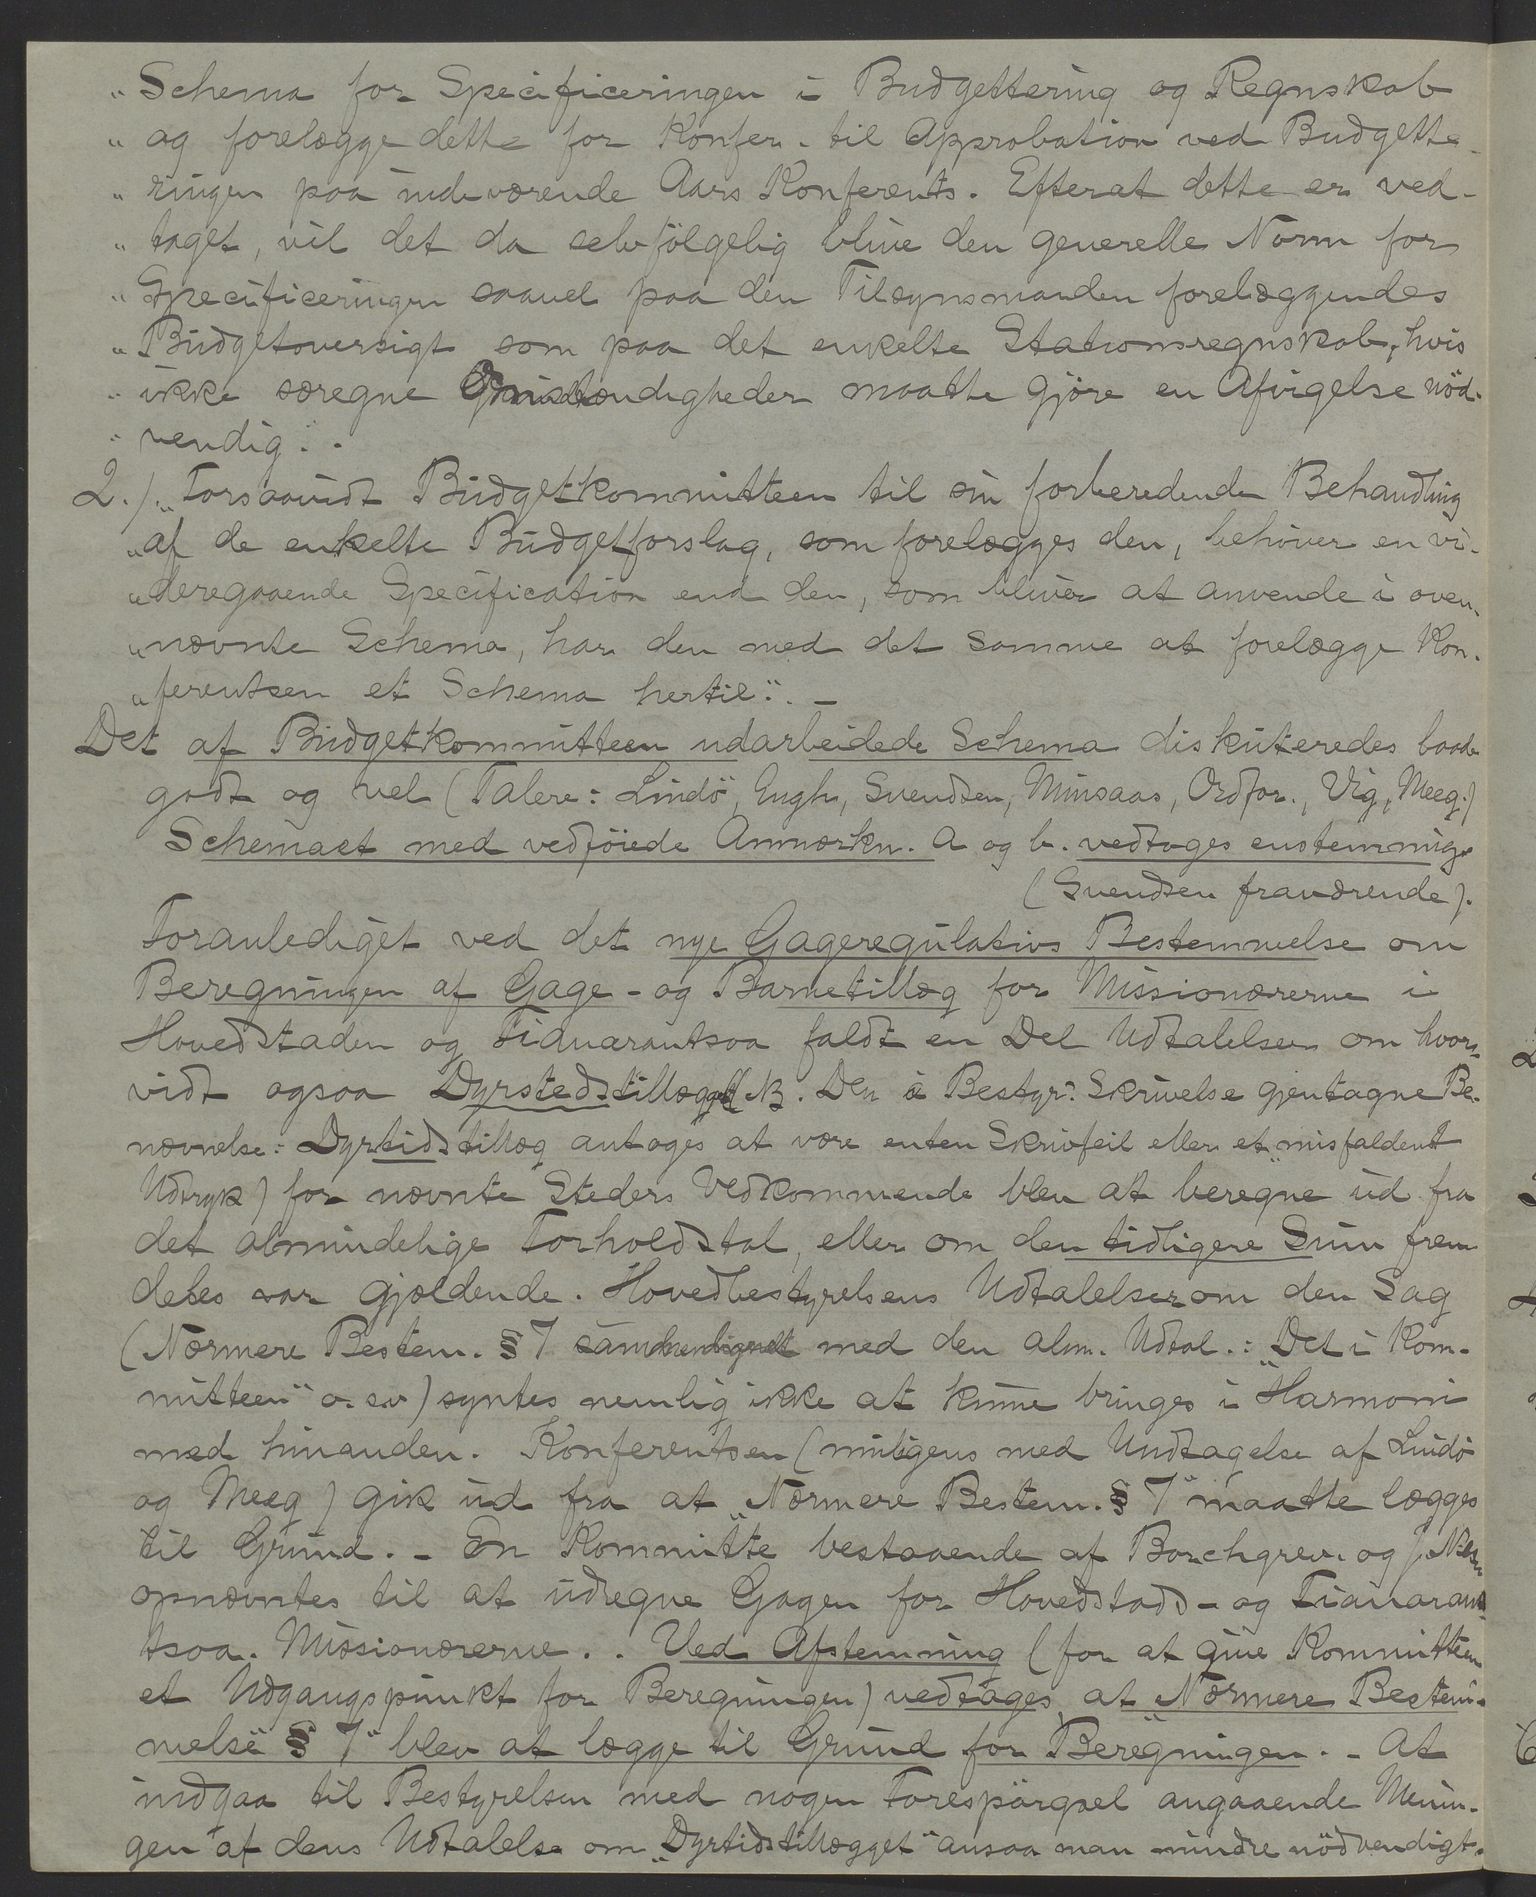 „Schema for Specificeringen i Budgettering og Regnskab
„og forelægge dette for Konfer. til Approbation ved Budgette-
„ringen paa indeværende Aars Konferents. Efterat dette er ved-
„taget, vil det da selvfölgelig blive den generelle Norm for
„Specificeringen saavel paa den Tilsynsmanden forelæggendes
„Budgetoversigt som paa det enkelte Stationsregnskab, hvis
„ikke særegne Omstændigheder maatte gjöre en Afvigelse nöd-
„vendig“.
2.) „Forsaavidt Budgetkommitteen til sin forberedende Behandling
„af de enkelte Budgetforslag, som forelægges den, behöver en vi-
„deregaaende Specification end den, som bliver at anvende i oven-
„nævnte Schema, har den med det samme at forelægge Kon-
„ferentsen et Schema hertil“. –
Det af Budgetkommitteen udarbeidede Schema diskuteredes baade
godt og vel (Talere: Lindö, Engh, Svendsen, Minsaas, Ordfor., Vig, Meeg.)
Schemaet med vedföiede Anmærkn. a og b. vedtages enstemmig.
(Svendsen fraværende).
Foranlediget ved det nye Gageregulativs Bestemmelse om
Beregningen af Gage- og Barnetillæg for Missionærerne i
Hovedstaden og Fianarantsoa faldt en Del Udtalelser om hvor-
vidt ogsaa Dyrstedstillægget (NB. Den i Bestyr: Skrivelse gjentagne Be-
nævnelse: Dyrtidstillæg antoges at være enten Skrivfeil eller et „misfaldent
Udtryk) for nævnte Steders Vedkommende blev at beregne ud fra
det almindelige Forholdstal, eller om den tidligere Sum frem
deles var gjældende. Hovedbestyrelsens Udtalelser om den Sag
(Nærmere Bestem. § 7 sammenlignet med den alm. Udtal.: „Det i Kom-
mitteen“ o.s.v) syntes nemlig ikke at kunne bringes i Harmoni
med hinanden. Konferentsen (muligens med Undtagelse af Lindö
og Meeg) gik ud fra at „Nærmere Bestem. § 7“ maatte lægges
til Grund. – En Kommitte bestaaende af Borchgrev. og J. Niels.
opnævntes til at udregne Gagen for Hovedstads- og Fianaran-
tsoa. Missionærerne. . Ved Afstemning (for at give Kommitteen
et Udgangspunkt for Beregningen) vedtages at „Nærmere Bestem-
melse § 7“ blev at lægge til Grund for Beregningen. – At
indgaa til Bestyrelsen med nogen Forespörgsel angaaende Menin-
gen af dens Udtalelse om „Dyrtidstillægget“ ansaa man mindre nödvendigt.